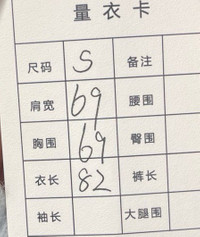 量衣卡
尺码 S 备注
肩宽 69 腰围
胸围 69 臀围
衣长 82 裤长
袖长 大腿围